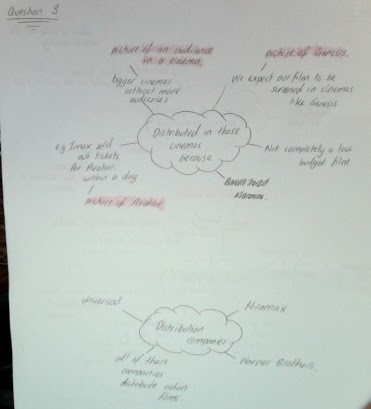 Question 3
picture of an audience
in a cinema.
picture of Genesis.
bigger cinemas
attract more
audiences
We expect our film to be
screened in cinemas
like Genesis
Distributed in these
cinemas
because
eg Imax sold
out tickets
for Avatar
within a day.
picture of Avatar.
Not completely a low
budget film
universal
Miramax
Distribution
companies
all of these
companies
distribute action
films.
Warner Brothers.